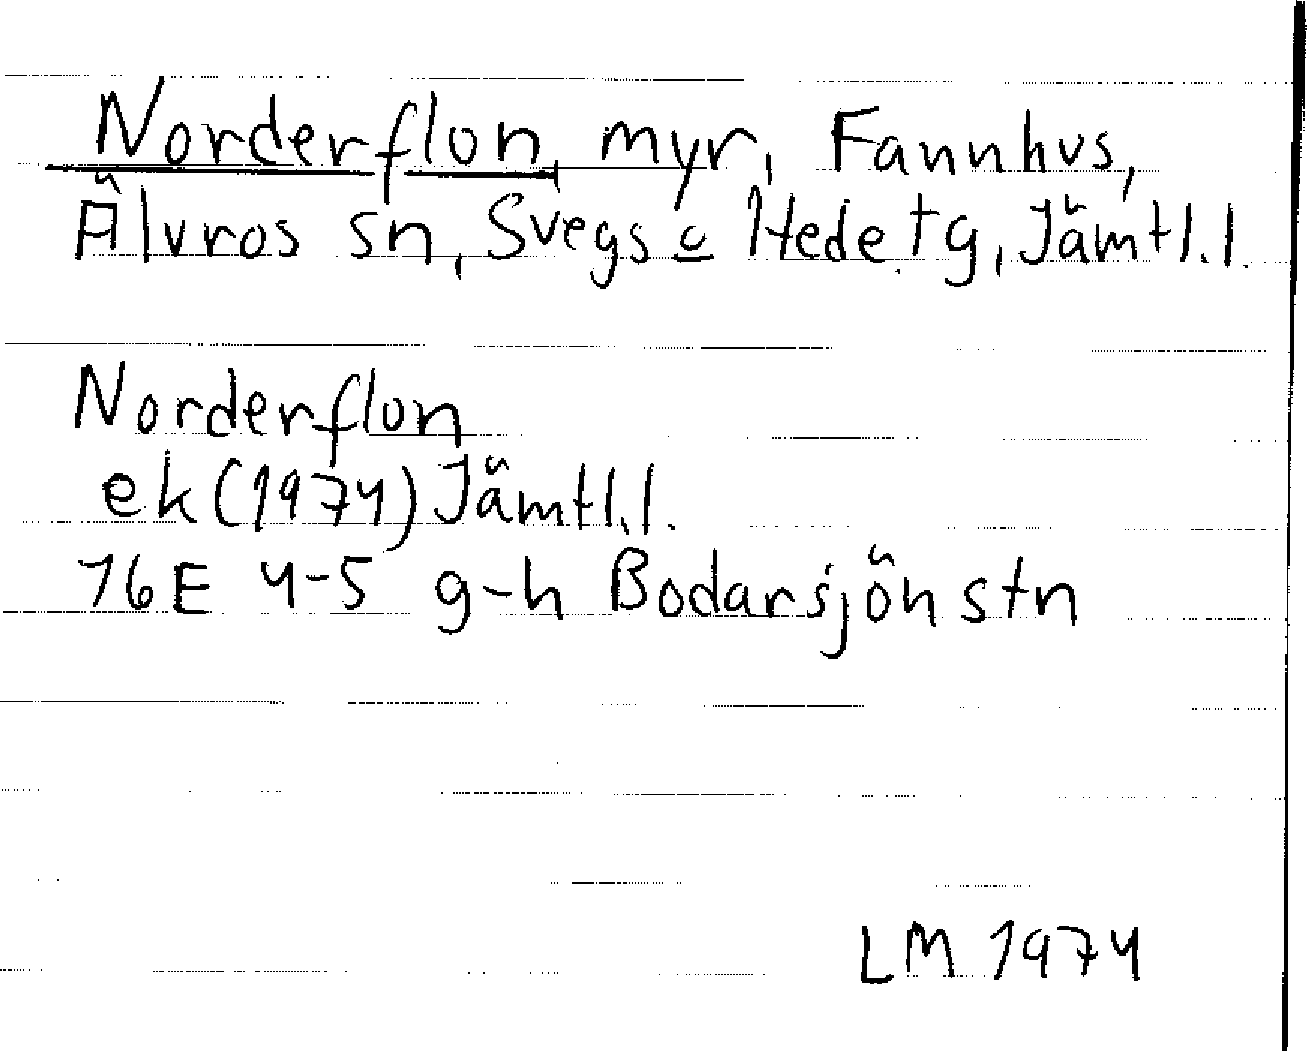 Norderflon, myr, Fannhus,
Älvros sn, Svegs o Hede tg, Jämtl.l.
Norderflon
ek (1974) Jämtl.l.
16E 4-5 g-h Bodarsjön stn
LM 1974